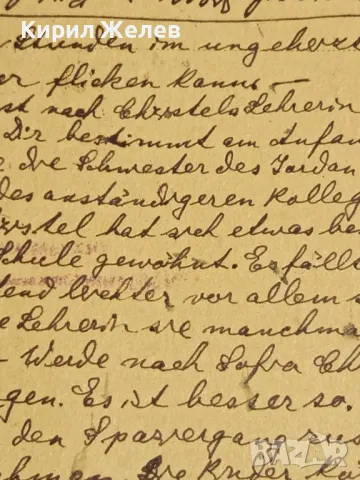 Кирил Желев
stunden im ungeheizt
er flicken kann. –
ist nach Christels Lehrerin
Dir bestimmt am Anfan
die Schwester des Jordan
des anständigeren Kolleg
istel hat sich etwas be
Schule gewöhnt. Es fällt
end leichter vor allem
e Lehrerin sie manchma
- Werde nach Sofia Ch
gen. Es ist besser so.
den Spaziergang zus
Die Kinder
BAZAR
bg